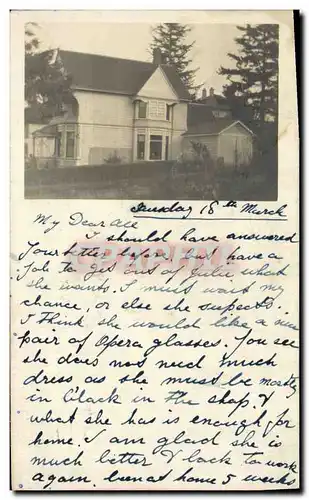 Tuesday 18th March
My Dear Ace
I should have answered
Your letter before but have a
Job to get out of Julie what
She wants. I must wait my
chance, or else she suspects.
I think she would like a nice
pair of Opera glasses. You see
she does not need much
dress as she must be mostly
in black in the shop. &
what she has is enough for
home. I am glad she is
much better & back to work
again. been at home 5 weeks